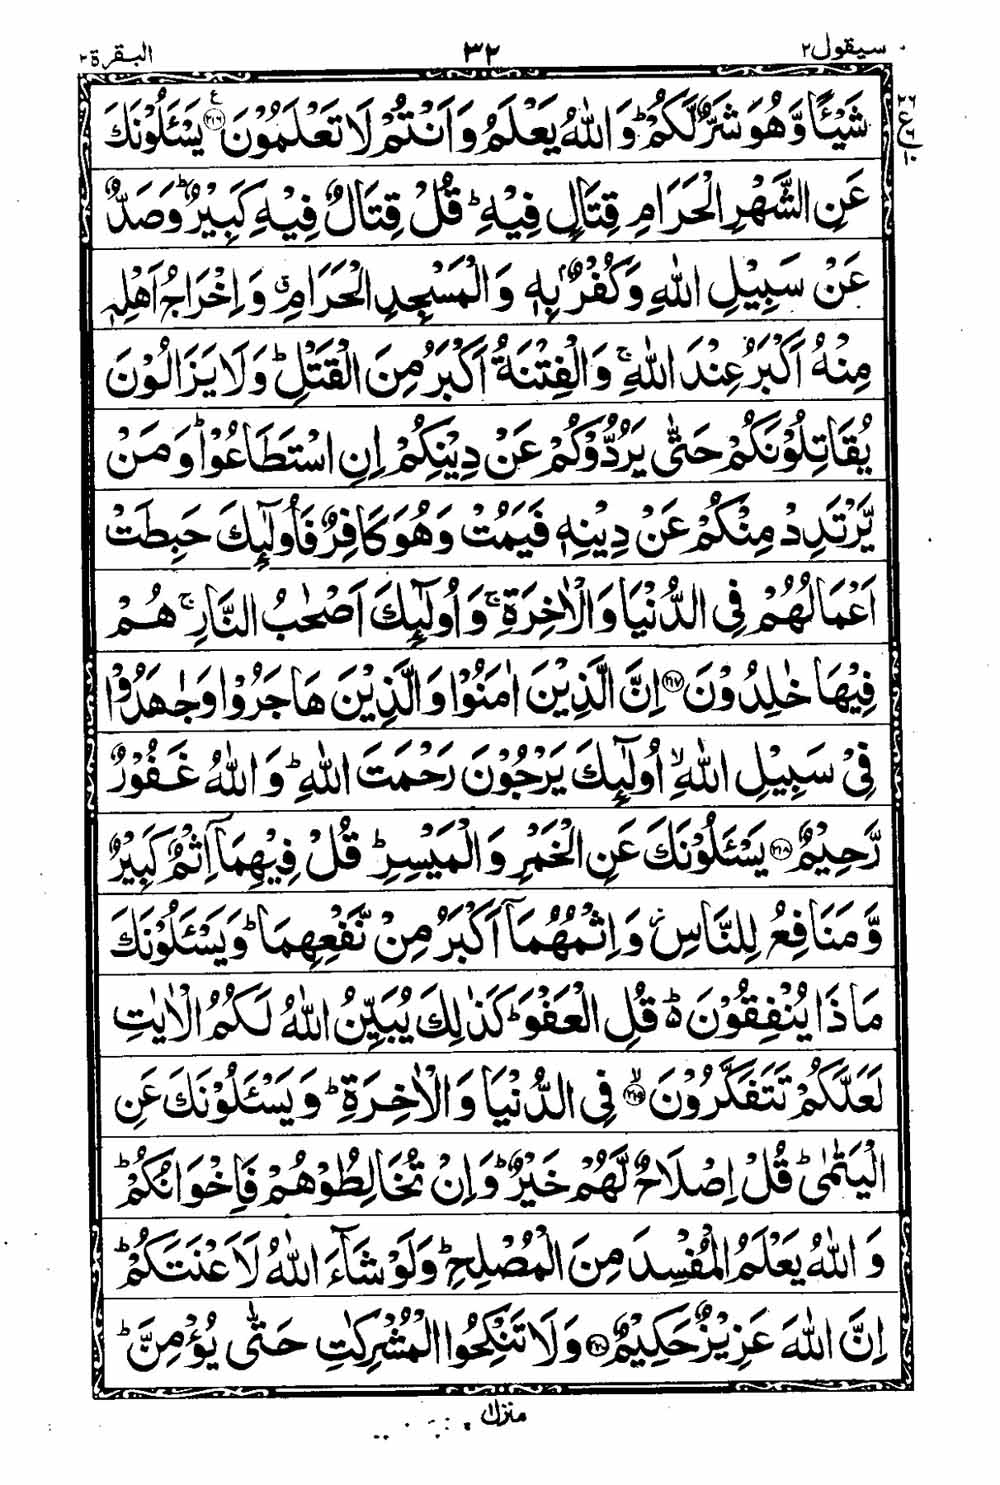 سيقول ٢ ٣٢ البقرة ٢
شَيْـًٔا وَّهُوَ شَرٌّ لَّكُمْ ؕ وَاللّٰهُ يَعْلَمُ وَاَنْتُمْ لَا تَعْلَمُوْنَ ﴿٢١٦﴾ ع يَسْـَٔلُوْنَكَ
٢٦
ع
٦
١٠
عَنِ الشَّهْرِ الْحَرَامِ قِتَالٍ فِيْهِ ؕ قُلْ قِتَالٌ فِيْهِ كَبِيْرٌ ؕ وَصَدٌّ
عَنْ سَبِيْلِ اللّٰهِ وَكُفْرٌۢ بِهٖ وَالْمَسْجِدِ الْحَرَامِ ۗ وَاِخْرَاجُ اَهْلِهٖ
مِنْهُ اَكْبَرُ عِنْدَ اللّٰهِ ۚ وَالْفِتْنَةُ اَكْبَرُ مِنَ الْقَتْلِ ؕ وَلَا يَزَالُوْنَ
يُقَاتِلُوْنَكُمْ حَتّٰى يَرُدُّوْكُمْ عَنْ دِيْنِكُمْ اِنِ اسْتَطَاعُوْا ؕ وَمَنْ
يَّرْتَدِدْ مِنْكُمْ عَنْ دِيْنِهٖ فَيَمُتْ وَهُوَ كَافِرٌ فَاُولٰٓئِكَ حَبِطَتْ
اَعْمَالُهُمْ فِى الدُّنْيَا وَالْاٰخِرَةِ ۚ وَاُولٰٓئِكَ اَصْحٰبُ النَّارِ ۚ هُمْ
فِيْهَا خٰلِدُوْنَ ﴿٢١٧﴾ اِنَّ الَّذِيْنَ اٰمَنُوْا وَالَّذِيْنَ هَاجَرُوْا وَجٰهَدُوْا
فِىْ سَبِيْلِ اللّٰهِ ۙ اُولٰٓئِكَ يَرْجُوْنَ رَحْمَتَ اللّٰهِ ؕ وَاللّٰهُ غَفُوْرٌ
رَّحِيْمٌ ﴿٢١٨﴾ يَسْـَٔلُوْنَكَ عَنِ الْخَمْرِ وَالْمَيْسِرِ ؕ قُلْ فِيْهِمَآ اِثْمٌ كَبِيْرٌ
وَّمَنَافِعُ لِلنَّاسِ ؗ وَاِثْمُهُمَآ اَكْبَرُ مِنْ نَّفْعِهِمَا ؕ وَيَسْـَٔلُوْنَكَ
مَاذَا يُنْفِقُوْنَ ؕ قُلِ الْعَفْوَ ؕ كَذٰلِكَ يُبَيِّنُ اللّٰهُ لَكُمُ الْاٰيٰتِ
لَعَلَّكُمْ تَتَفَكَّرُوْنَ ۙ﴿٢١٩﴾ فِى الدُّنْيَا وَالْاٰخِرَةِ ؕ وَيَسْـَٔلُوْنَكَ عَنِ
الْيَتٰمٰى ؕ قُلْ اِصْلَاحٌ لَّهُمْ خَيْرٌ ؕ وَاِنْ تُخَالِطُوْهُمْ فَاِخْوَانُكُمْ ؕ
وَاللّٰهُ يَعْلَمُ الْمُفْسِدَ مِنَ الْمُصْلِحِ ؕ وَلَوْ شَآءَ اللّٰهُ لَاَعْنَتَكُمْ ؕ
اِنَّ اللّٰهَ عَزِيْزٌ حَكِيْمٌ ﴿٢٢٠﴾ وَلَا تَنْكِحُوا الْمُشْرِكٰتِ حَتّٰى يُؤْمِنَّ ؕ
منزل